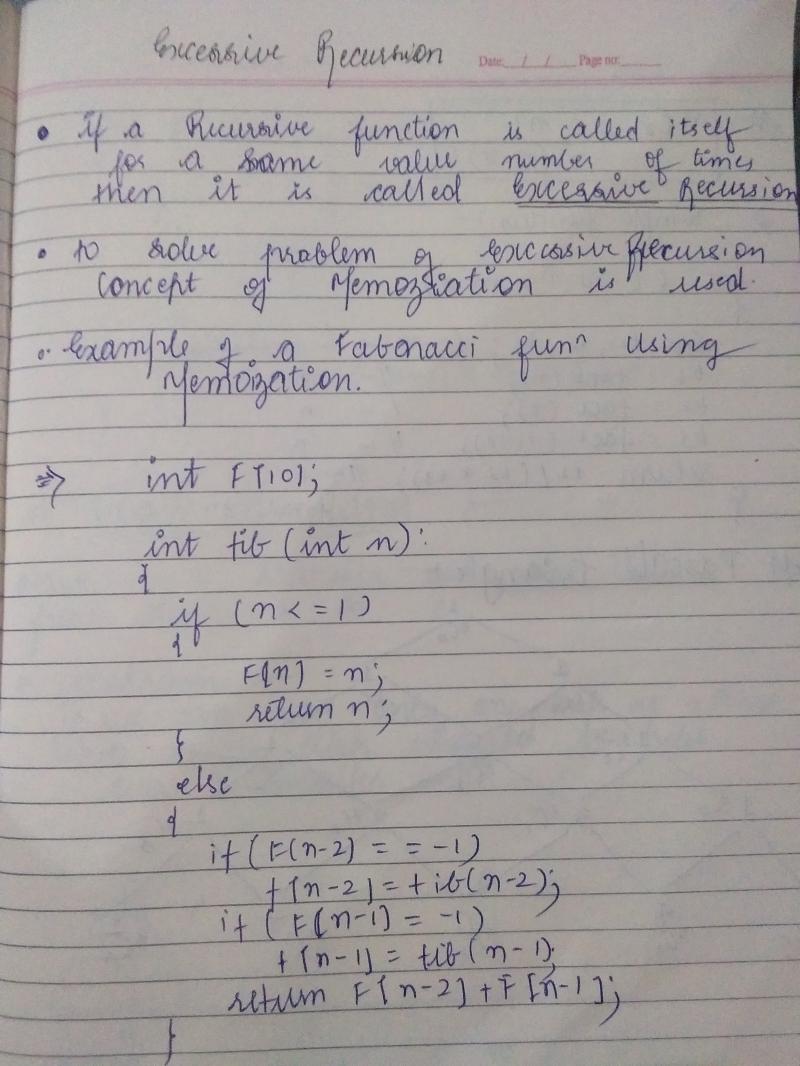 Excessive Recursion
Date: / / Page no:
• if a Recursive function is called itself
for a same value number of times
then it is called excessive Recursion
• to solve problem of excessive Recursion
Concept of Memoziation is used.
• Example of a Fabonacci funⁿ using
Memoization.
⇒ int F[10];
int fib (int n):
{
if (n <= 1)
{
F[n] = n;
return n;
}
else
{
if (F(n-2) = = -1)
f[n-2] = fib(n-2);
if (F[n-1] = -1)
f[n-1] = fib(n-1);
return F[n-2] + F[n-1];
}